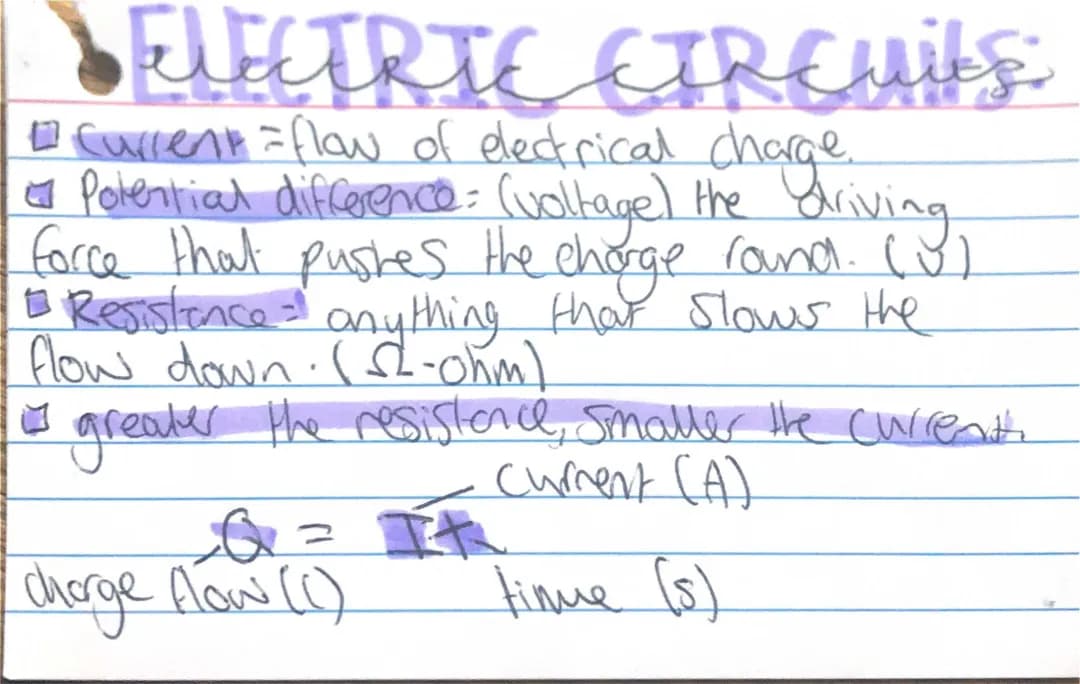 ELECTRIC CIRCUITS
electric circuits
Current = flow of electrical charge.
Potential difference = (voltage) the driving
force that pushes the charge round. (V)
Resistance = anything that slows the
flow down. (Ω-ohm)
greater the resistance, smaller the current.
current (A)
Q = It
charge flow (C) time (s)